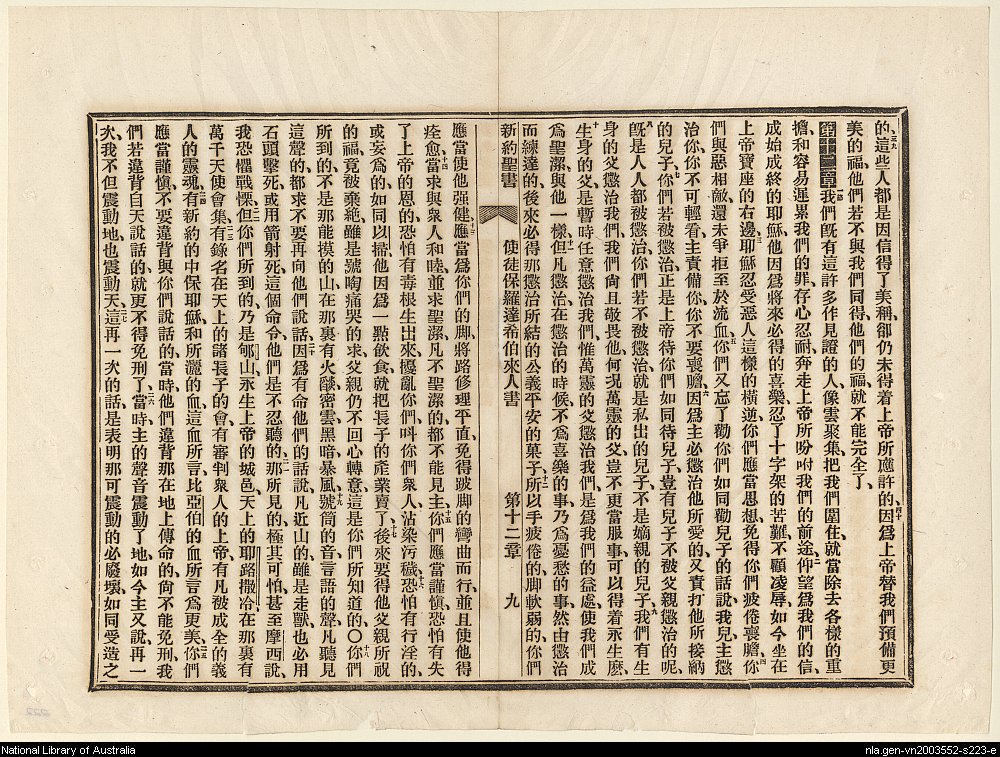 的這些人都是因信得了美稱卻仍未得着上帝所應許的因爲上帝替我們預備更
美的福他們若不與我們同得他們的福就不能完全了
第十二章我們既有這許多作見證的人像雲聚集把我們圍住就當除去各樣的重
擔和容易遲累我們的罪存心忍耐奔走上帝所吩咐我們的前途仰望爲我們的信
成始成終的耶穌他因爲將來必得的喜樂忍了十字架的苦難不顧凌辱如今坐在
上帝寶座的右邊耶穌忍受惡人這樣的橫逆你們應當思想免得你們疲倦喪膽你
們與惡相敵還未爭拒至於流血你們又忘了勸你們如同勸兒子的話說我兒主懲
治你你不可輕看主責備你你不要喪膽因爲主必懲治他所愛的又責打他所接納
的兒子你們若被懲治正是上帝待你們如同待兒子豈有兒子不被父親懲治的呢
既是人人都被懲治你們若不被懲治就是私出的兒子不是嫡親的兒子我們有生
身的父懲治我們我們尙且敬畏他何況萬靈的父豈不更當服事可以得着永生麽
生身的父是暫時任意懲治我們惟萬靈的父懲治我們是爲我們的益處使我們成
爲聖潔與他一樣但凡懲治在懲治的時候不爲喜樂的事乃爲憂愁的事然由懲治
而練達的後來必得那懲治所結的公義平安的菓子所以手疲倦的脚軟弱的你們
新約聖書 使徒保羅達希伯來人書 第十二章 九
應當使他强健應當爲你們的脚將路修理平直免得跛脚的彎曲而行並且使他得
痊愈當求與衆人和睦並求聖潔凡不聖潔的都不能見主你們應當謹愼恐怕有失
了上帝的恩的恐怕有毒根生出來擾亂你們呌你們衆人沾染污穢恐怕有行淫的
或妄爲的如同以掃他因爲一點飲食就把長子的產業賣了後來要得他父親所祝
的福竟被棄絶雖是號啕痛哭的求父親仍不回心轉意這是你們所知道的〇你們
所到的不是那能摸的山在那裏有火燄密雲黑暗暴風號筒的音言語的聲凡聽見
這聲的都求不要再向他們說話因爲有命他們的話說凡近山的雖是走獸也必用
石頭擊死或用箭射死這個命令他們是不忍聽的那所見的極其可怕甚至摩西說
我恐懼戰慄但你們所到的乃是郇山永生上帝的城邑天上的耶路撒冷在那裏有
萬千天使會集有錄名在天上的諸長子的會有審判衆人的上帝有凡被成全的義
人的靈魂有新約的中保耶穌和所灑的血這血所言比亞伯的血所言爲更美你們
應當謹愼不要違背與你們說話的當時他們違背那在地上傳命的尙不能免刑我
們若違背自天說話的就更不得免刑了當時主的聲音震動了地如今主又說再一
次我不但震動地也震動天這再一次的話是表明那可震動的必廢壞如同受造之
National Library of Australia
nla.gen-vn2003552-s223-e